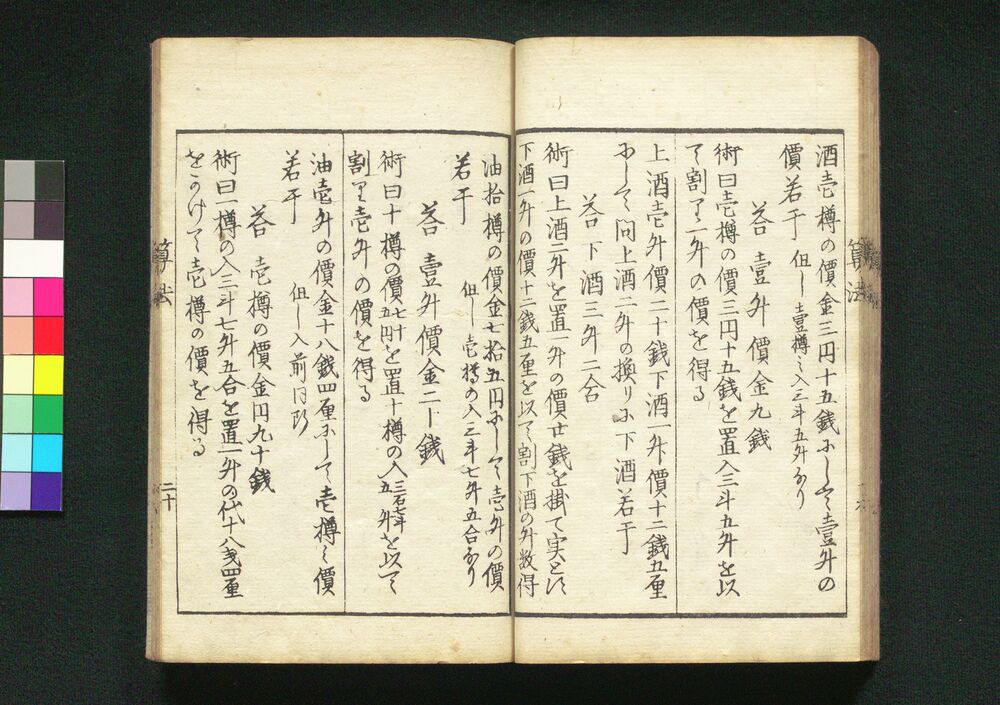 酒壱樽の價金三円十五銭にして壹升の
價若干　但し壹樽ハ入三斗五升なり
答　壹升　價金九銭
術曰壱樽の價三円十五銭を置入三斗五升を以
て割り一升の價を得る
上酒壱升價二十銭下酒一升價十二銭五厘
にして問上酒二升の換りに下酒若干
答　下酒三升二合
術曰上酒二升を置一升の價廿銭を掛て実とし
下酒一升の價十二銭五厘を以て割下酒の升数得
算法
油拾樽の價金七拾五円にして壱升の價
若干　但し壱樽の入三斗七升五合なり
答　壹升價金二十銭
術曰十樽の價七十五円を置十樽の入三石七斗五升を以て
割り壱升の價を得る
油壱升の價金十八銭四厘にして壱樽之價
若干　但し入前同断
答　壱樽の價金円九十銭
術曰一樽の入三斗七升五合を置一升の代十八銭四厘
をかけて壱樽の價を得る
算法
二十